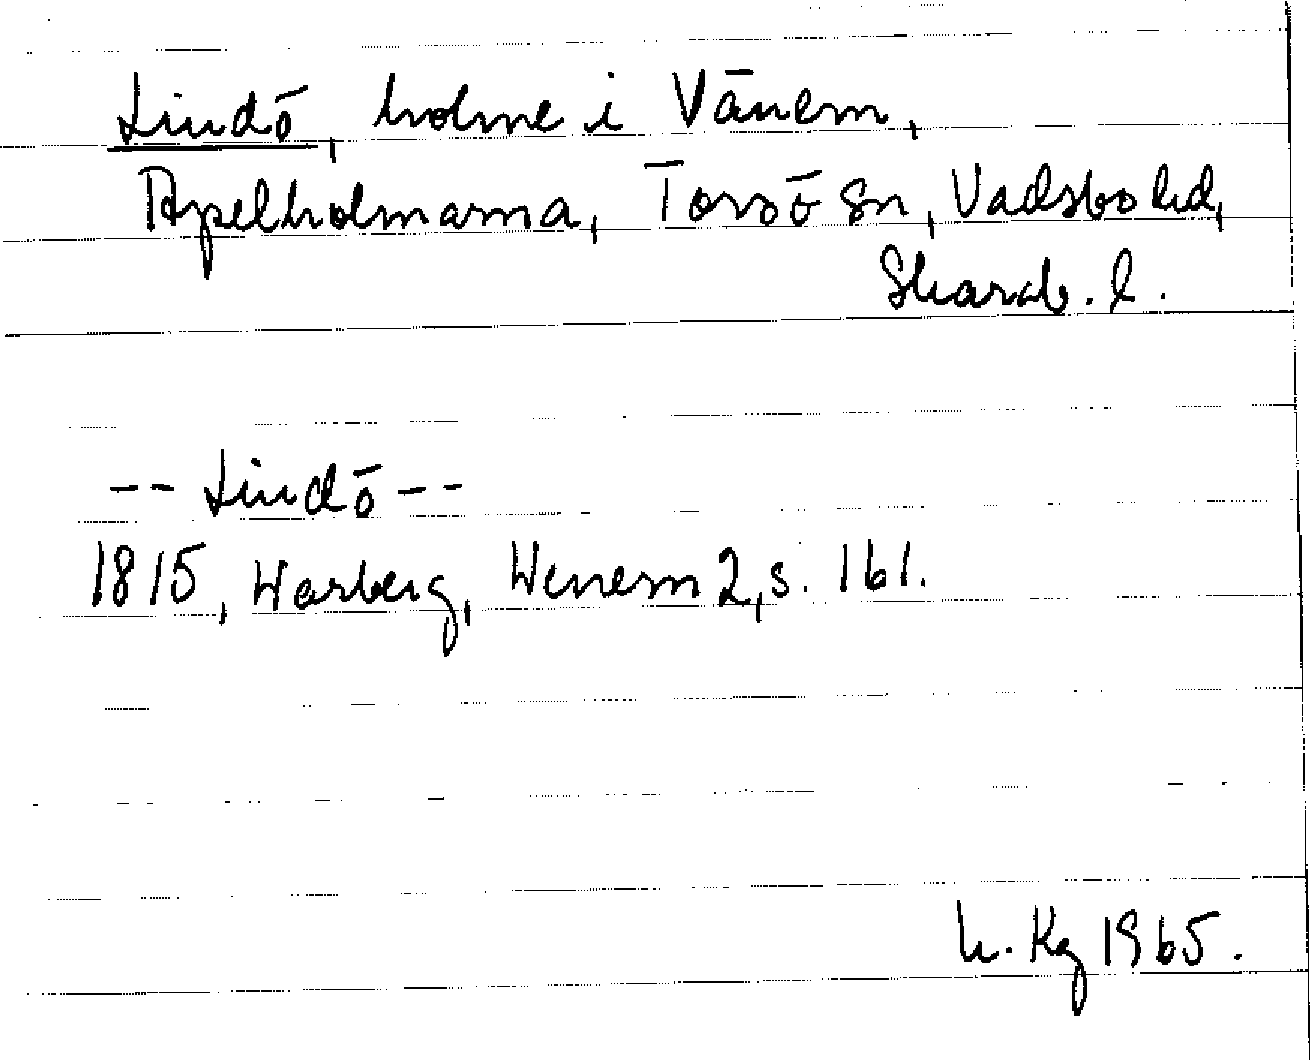 Lindö, holme i Vänern,
Apelholmarna, Torsö sn, Vadsbo hd,
Skarab. l.
-- Lindö --
1815, Warberg, Wenern 2, s. 161.
h. Kg 1965.